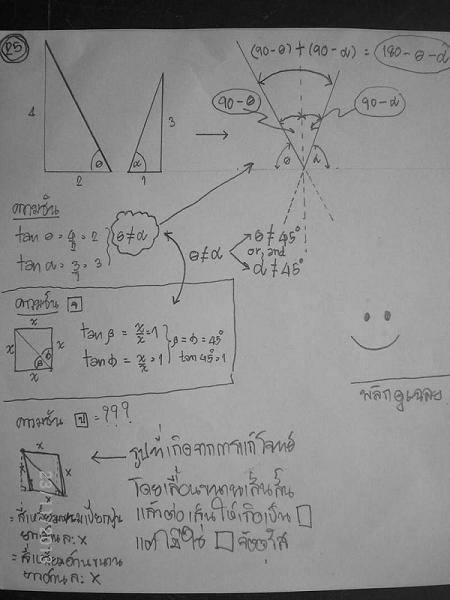 25
(90-θ) + (90-α) = 180-θ-α
90-θ
90-α
4
3
θ
α
θ
α
2
1
ความชัน
tan θ = 4/2 = 2
tan α = 3/1 = 3
θ ≠ α
θ ≠ α
θ ≠ 45°
or, and
α ≠ 45°
ความชัน
x
x
x
x
tan β = x/x = 1
tan Φ = x/x = 1
β = Φ = 45°
tan 45° = 1
พลิกดูเฉลย
ความชัน = ???
x
x
x
รูปที่เกิดจากการแก้โจทย์
โดยเลื่อนขนานเส้นสั้น
แล้วต่อเส้นให้เกิดเป็น □
แต่ไม่ใช่ □ จัตุรัส
= สี่เหลี่ยมขนมเปียกปูน
ยาวด้านละ x
= สี่เหลี่ยมด้านขนาน
ยาวด้านละ x